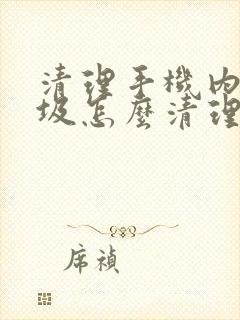 清理手機內
圾怎麼清理
席禎